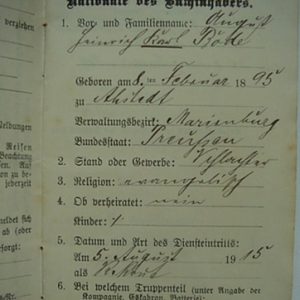 verziehen
Meldungen
Reisen
Beachtung
sen. Auf
en zu je-
bederzeit
meldet sich
ab (oder
esorgt:
Nationale des Buchinhabers.
1. Vor- und Familienname: August
Heinrich Karl
Geboren am 8. ten Februar 1895
zu Ahstedt
Verwaltungsbezirk: Marienburg
Bundesstaat: Preussen
2. Stand oder Gewerbe: Schlachter
3. Religion: evangelisch
4. Ob verheiratet: nein
Kinder:
5. Datum und Art des Diensteintritts:
Am 5. August 1915
als
6. Bei welchem Truppenteil (unter Angabe der
Kompagnie, Eskadron, Batterie):